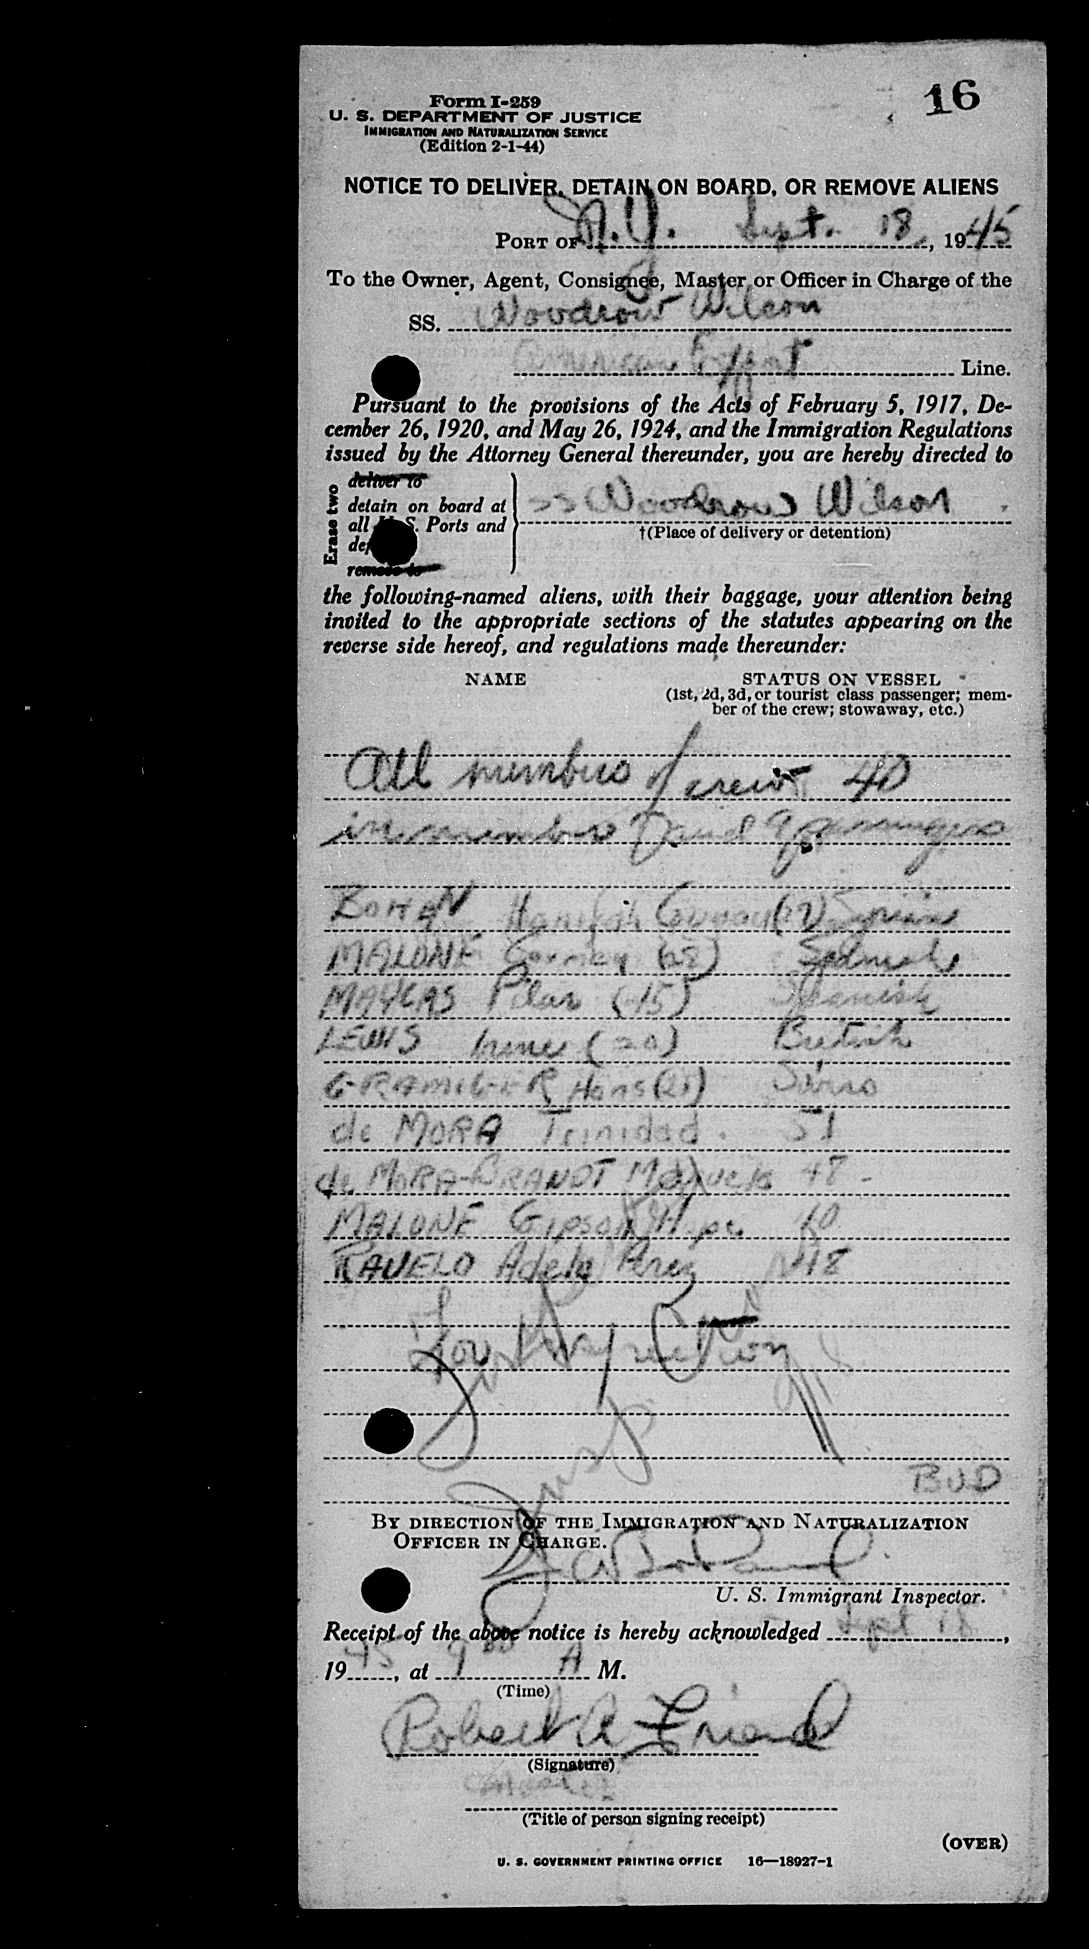 16
Form I-259
U. S. DEPARTMENT OF JUSTICE
IMMIGRATION AND NATURALIZATION SERVICE
(Edition 2-1-44)
NOTICE TO DELIVER, DETAIN ON BOARD, OR REMOVE ALIENS
PORT OF N.Y. Sept. 18, 1945
To the Owner, Agent, Consignee, Master or Officer in Charge of the
SS. Woodrow Wilson
American Export Line.
Pursuant to the provisions of the Acts of February 5, 1917, De-
cember 26, 1920, and May 26, 1924, and the Immigration Regulations
issued by the Attorney General thereunder, you are hereby directed to
Erase two
deliver to
detain on board at
all U. S. Ports and
remove to
SS Woodrow Wilson
†(Place of delivery or detention)
the following-named aliens, with their baggage, your attention being
invited to the appropriate sections of the statutes appearing on the
reverse side hereof, and regulations made thereunder:
NAME STATUS ON VESSEL
(1st, 2d, 3d, or tourist class passenger; mem-
ber of the crew; stowaway, etc.)
All members of crew 40
in number and 9 passengers
BOHAN (22) Syrian
MALONE Carmen (28) Spanish
MAYCAS Pilar (45) Spanish
LEWIS Irene (20) British
GRAMIGER Hans (25) Swiss
de MORA Trinidad. 51
de MORA-BRANDT 48
MALONE Gipson 10
RAVELO Adela Perez 18
BUD
BY DIRECTION OF THE IMMIGRATION AND NATURALIZATION
OFFICER IN CHARGE.
U. S. Immigrant Inspector.
Receipt of the above notice is hereby acknowledged Sept 18,
1945, at 9 00 A M.
(Time)
Robert A Friend
(Signature)
Master
(Title of person signing receipt)
(OVER)
U. S. GOVERNMENT PRINTING OFFICE 16—18927-1